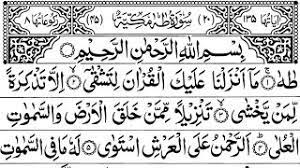 اٰيَاتُهَا ١٣٥ (٢٠) سُوْرَةُ طٰهٰ مَكِّيَّةٌ (٤٥) رُكُوْعَاتُهَا ٨
بِسْمِ اللّٰهِ الرَّحْمٰنِ الرَّحِيْمِ
طٰهٰ ۚ مَاۤ اَنْزَلْنَا عَلَيْكَ الْقُرْاٰنَ لِتَشْقٰۤى ۙ اِلَّا تَذْكِرَةً
لِّمَنْ يَّخْشٰى ۙ تَنْزِيْلًا مِّمَّنْ خَلَقَ الْاَرْضَ وَالسَّمٰوٰتِ
الْعُلٰى ؕ اَلرَّحْمٰنُ عَلَى الْعَرْشِ اسْتَوٰى ۚ لَهٗ مَا فِى السَّمٰوٰتِ